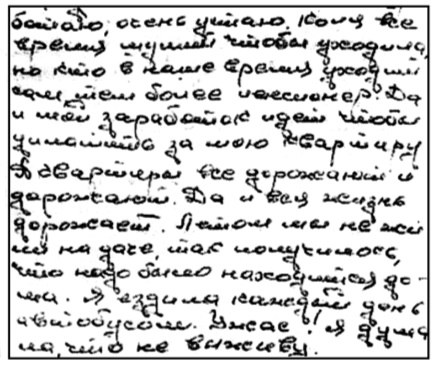 ботаю, очень устаю. Коля все
время шумит чтобы уходила,
но кто в наше время уходит
сам, тем более пенсионер. Да
и мой заработок идет чтобы
уплатить за мою квартиру
А квартиры все дорожают и
дорожают. Да и вся жизнь
дорожает. Летом мы не жи
ли на даче, так получилось,
что надо было находиться до-
ма. Я ездила каждый день
автобусом. Ужас! Я дума
ла, что не выживу.